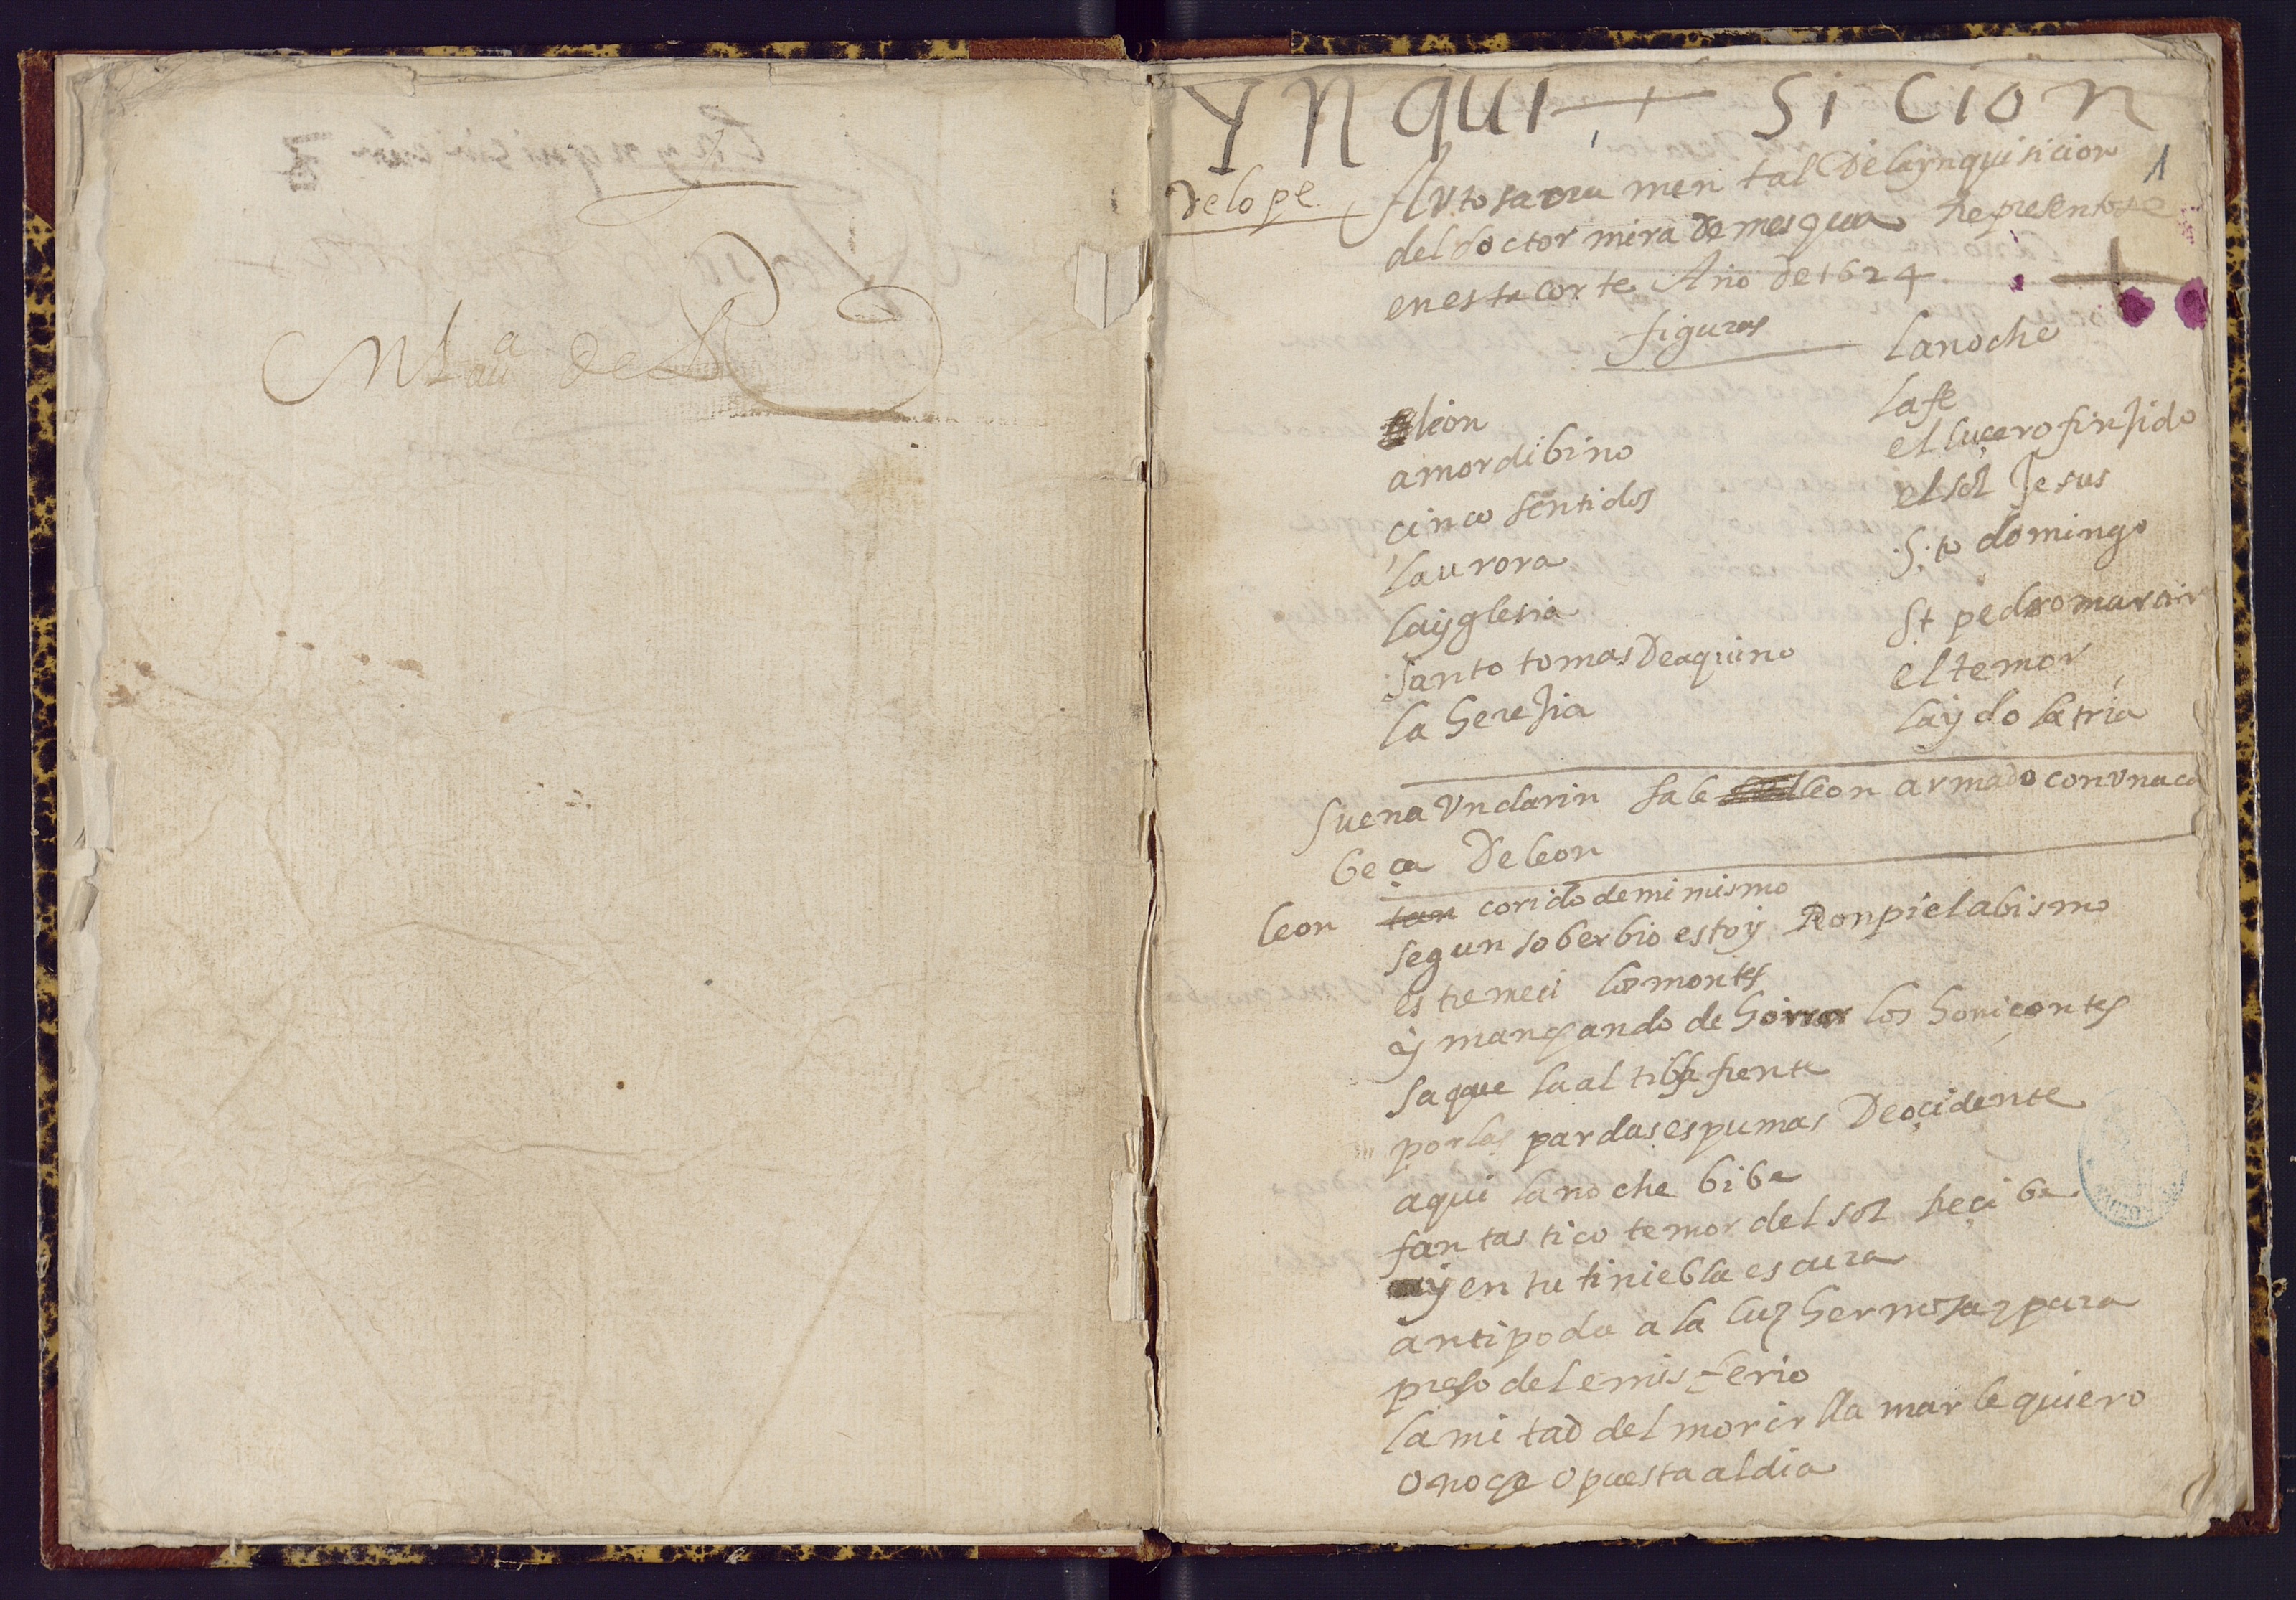 YNqui + sicion
1
de lope
Auto sacramental De la ynquisicion
del doctor mira de mesqua Representose
en esta corte Año de 1624
figuras
leon
amor dibino
cinco sentidos
laurora
la yglesia
santo tomas De aquino
la herejia
la noche
la fe
el luçero finjido
el sol Jesus
S.to domingo
St pedro martir
el temor
la ydolatria
suena Un clarin sale leon armado con Una ca
beça De leon
leon tan corido de mi mismo
segun soberbio estoy Ronpi el abismo
estremeci los montes
y manchando de horror los horiçontes
saque la altiba frente
por las pardas espumas De oçidente
aqui la noche bibe
fantastico temor del sol Reçibe
y en tu tiniebla escura
antipoda a la luz hermosa y pura
preso del emisferio
la mitad del morir llamarle quiero
o noche opuesta al dia